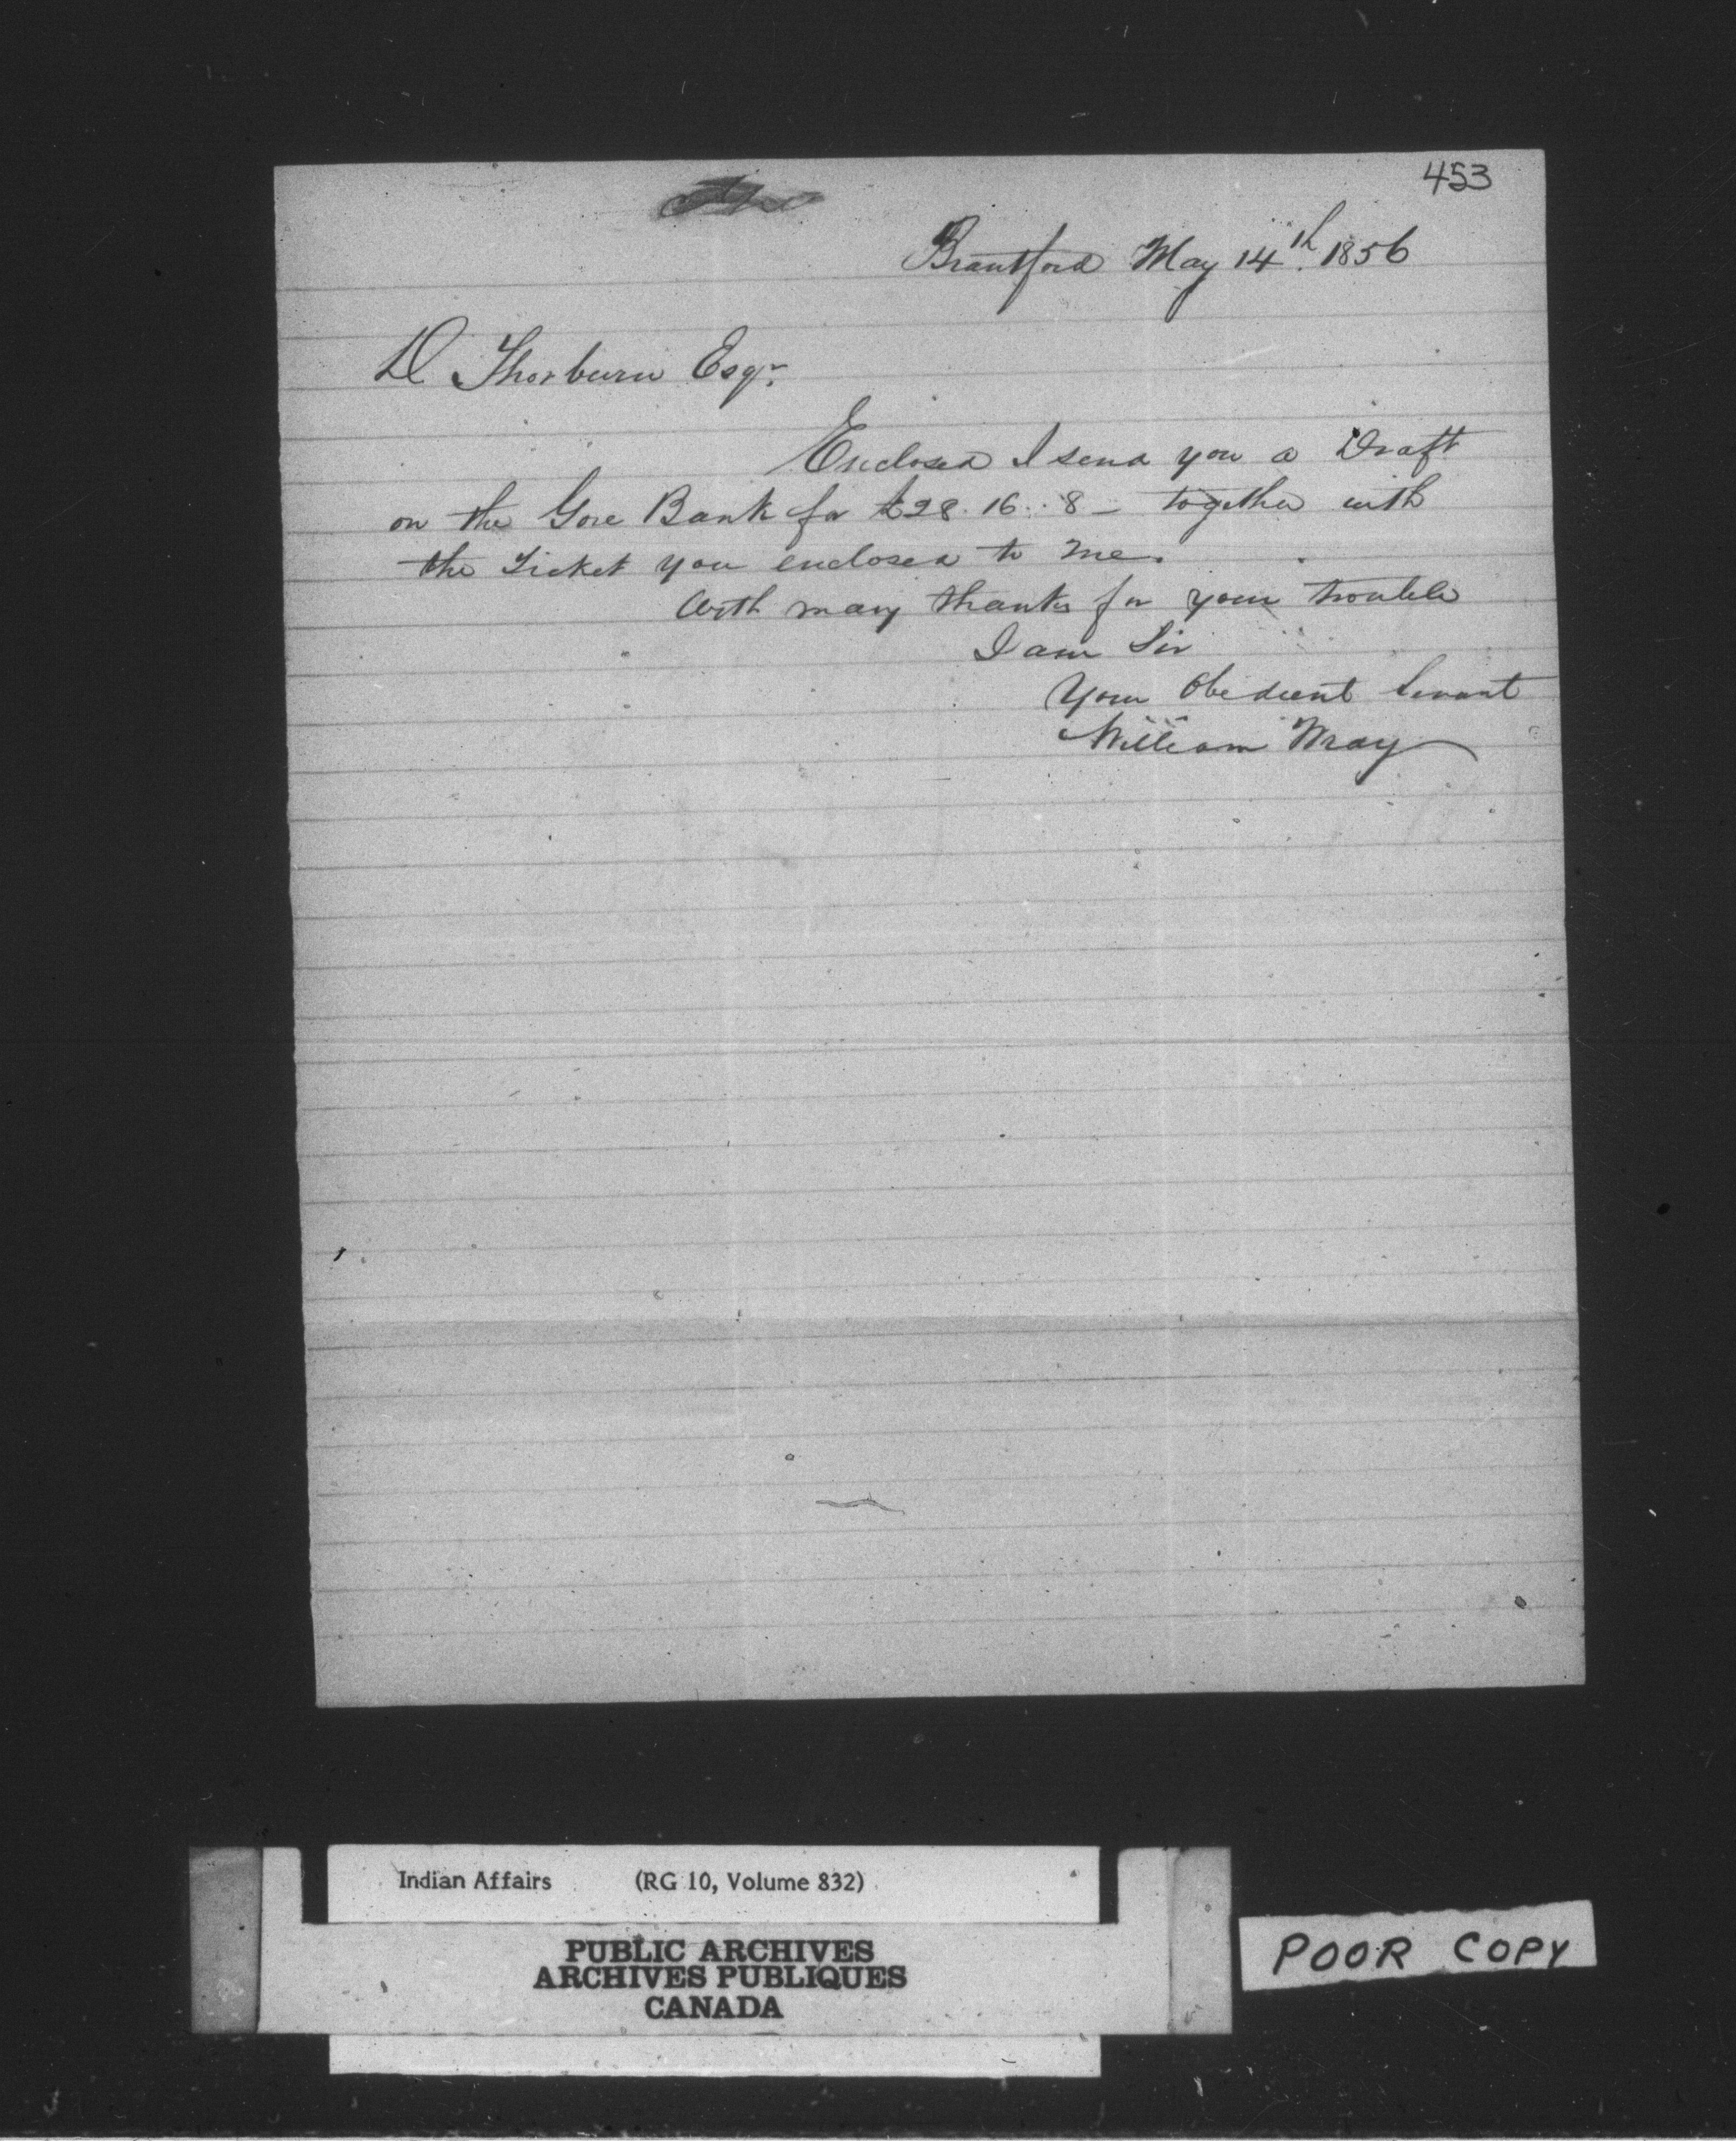 453
Brantford May 14th. 1856
D Thorburn Esqr.
Enclosed I send you a Draft
on the Gore Bank for £28. 16..8 – together with
the Ticket you enclosed to me.
With many thanks for your trouble
I am Sir
Your Obedient Servant
William
Indian Affairs (RG 10, Volume 832)
PUBLIC ARCHIVES
ARCHIVES PUBLIQUES
CANADA
POOR COPY